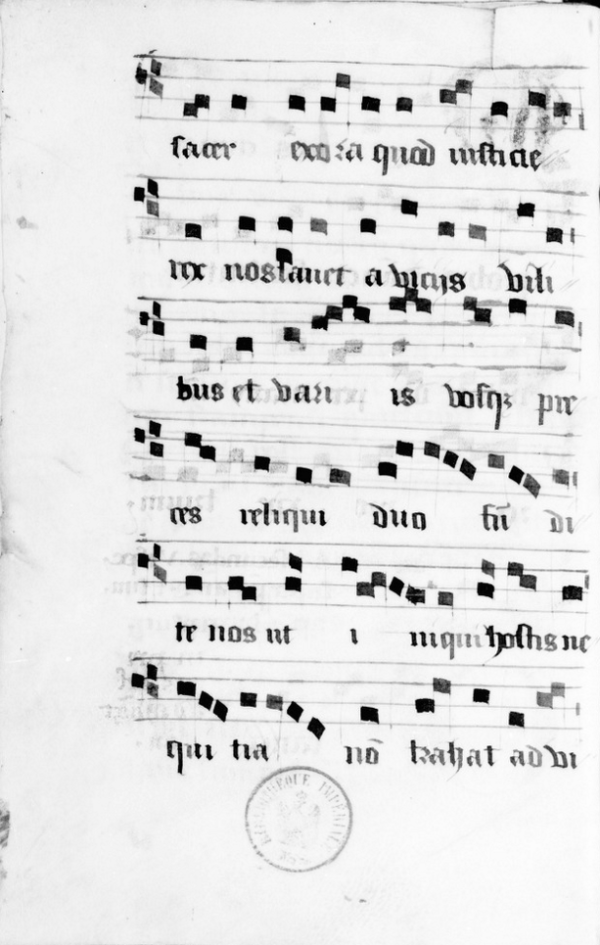 sacer exora quod iusticie
rex nos lauet a vicijs vili
bus et vari is vosqꝫ pre
ces reliqui duo fūdi
te nos ut i niqui hostis ne
qui tia nō trahat ad vi
BIBLIOTHEQUE IMPERIALE